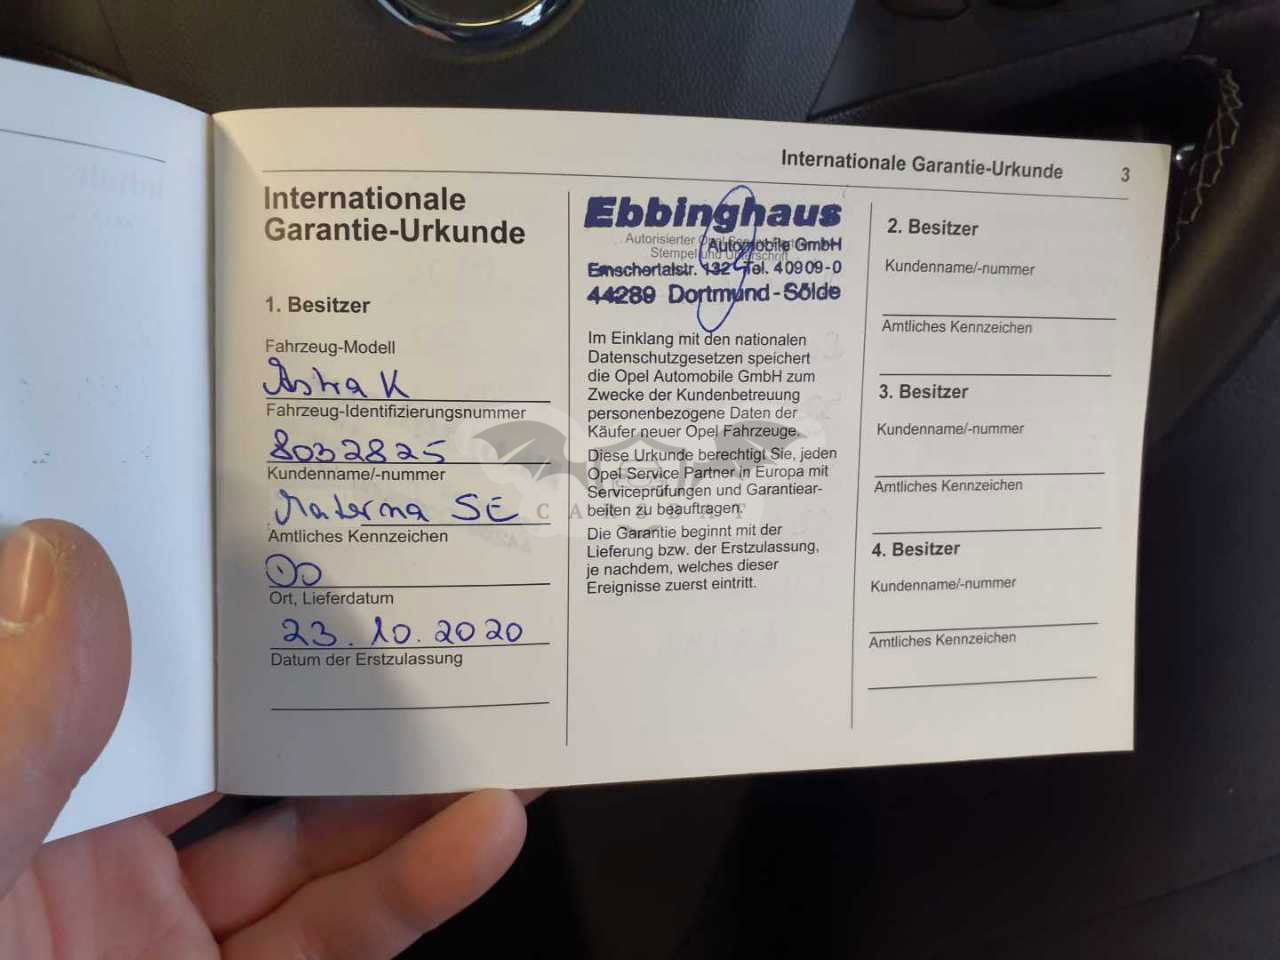 Internationale Garantie-Urkunde 3
Internationale
Garantie-Urkunde
1. Besitzer
Fahrzeug-Modell
Astra K
Fahrzeug-Identifizierungsnummer
8032825
Kundenname/-nummer
Materna SE
Amtliches Kennzeichen
Ort, Lieferdatum
23.10.2020
Datum der Erstzulassung
Ebbinghaus
Autorisierter Opel Service Partner
Automobile GmbH
Stempel und Unterschrift
Emschertalstr. 132 Tel. 40909-0
44289 Dortmund-Sölde
Im Einklang mit den nationalen
Datenschutzgesetzen speichert
die Opel Automobile GmbH zum
Zwecke der Kundenbetreuung
personenbezogene Daten der
Käufer neuer Opel Fahrzeuge.
Diese Urkunde berechtigt Sie, jeden
Opel Service Partner in Europa mit
Serviceprüfungen und Garantiear-
beiten zu beauftragen.
Die Garantie beginnt mit der
Lieferung bzw. der Erstzulassung,
je nachdem, welches dieser
Ereignisse zuerst eintritt.
2. Besitzer
Kundenname/-nummer
Amtliches Kennzeichen
3. Besitzer
Kundenname/-nummer
Amtliches Kennzeichen
4. Besitzer
Kundenname/-nummer
Amtliches Kennzeichen